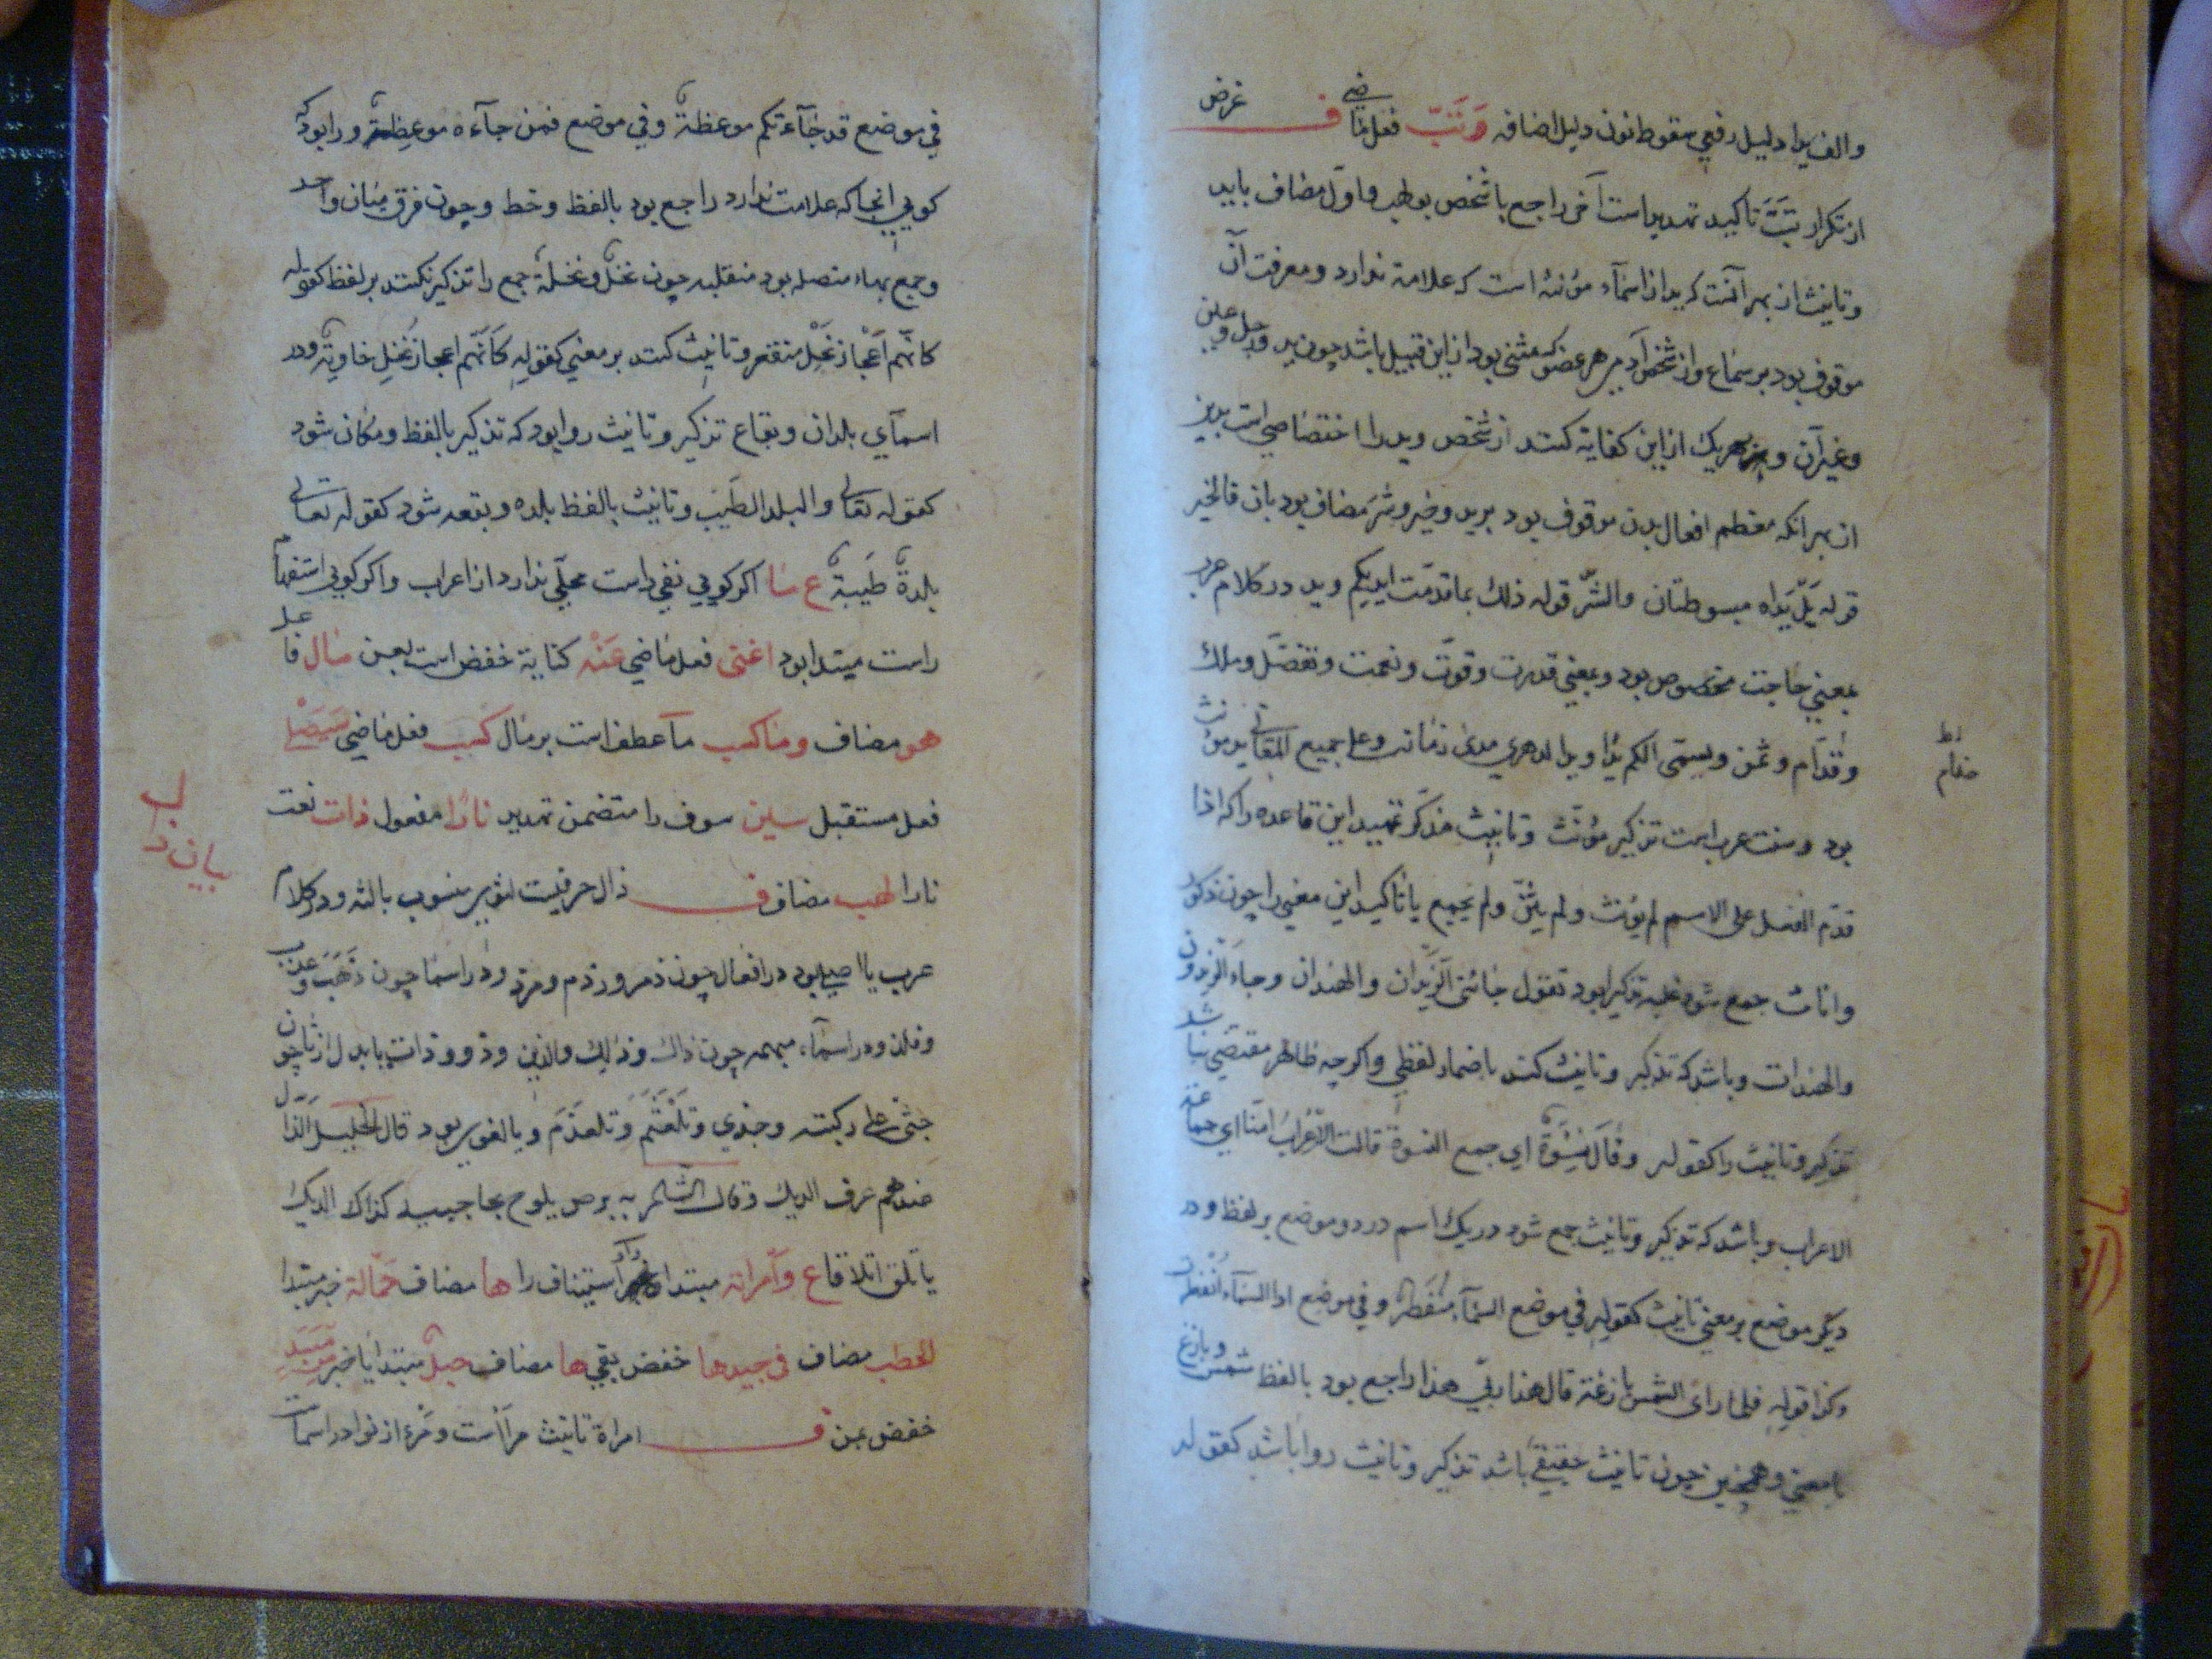 والف یدا دلیل رفع سقوط نون دلیل اضافه وَتَبَّ فعل ماضی ف غرض
از تکرار تَبَّتْ تاکید تهدید است آخر راجع با شخص بولهب و اول مضاف با ید
و تانیث از بهر آنست که ید از اسمآء مؤنثه است که علامة ندارد و معرفت آن
موقوف بود بر سماع و از شخص آدمی هر عضو که مثنی بود ازین قبیل باشد چون ید و رجل و عین
و غیر آن و هریک ازین کفایة کند از شخص و ید را اختصاصی است بدین
از بهر انکه معظم افعال بدن موقوف بود بر ید و خیر و شر مضاف بود بان فالخیر
قوله بَلْ یَداه مبسوطتان والشّر قوله ذلك بما قدمت ایدیکم و ید در کلام عرب
بمعنی حاجت مخصوص بود و بمعنی قدرت و قوّت و نعمت و تفضّل و ملك
و قدّام و ثمن ویسمّی الکم یدًا وید الدهر ای مدی زمانه وعلی جمیع المعانی ید مؤنث
بود و سنت عرب است تذکیر مؤنّث و تانیث مذکّر تمهید این قاعده را که اذا
قدّم الفعل علی الاسم لم یؤنث ولم یثنّ ولم یجمع یا تاکید این معنی را چون ذکور
و اناث جمع شود غلبه تذکیر بود تقول جائنی الزیدان والهندان وجاء الزیدون
والهندات و باشد که تذکیر و تانیث کند باضمار لفظی و اگرچه ظاهر مقتضی نباشد
تذکیر و تانیث را کقوله وقَالَ نِسْوَةٌ ای جمع النسوة قالت الاَعْرَابُ امنّا ای جماعة
الاعراب و باشد که تذکیر و تانیث جمع شود در یك اسم در دو موضع بر لفظ و در
دیگر موضع بر معنی تانیث کقوله فی موضع السّمآء مُنفَطِرٌ و فی موضع اذا السّمآء انْفَطَرَت
و کذا قوله فلمّا رای الشمس بازغة قال هذا ربّی هذا راجع بود بالفظ شمس و بازغ
بامعنی و همچنین چون تانیث حقیقی باشد تذکیر و تانیث روا باشد کقوله
خدام
فی موضع قد جَآءَتکم موعظةٌ و فی موضع فمن جآءه موعِظةٌ و روا بود که
کویی انجا که علامت ندارد راجع بود بالفظ و خط و چون فرق میان واحد
و جمع بهاء متصله بود منقلبه چون نخلٌ و نخلةٌ جمع را تذکیر کنند بر لفظ کقوله
کانّهم اَعْجاز نَخْلٍ منقعر و تانیث کند بر معنی کقوله کَاَنَّهم اعجاز نَخْلٍ خاویةٍ و در
اسمآی بلدان و بقاع تذکیر و تانیث روا بود که تذکیر بالفظ و مکان شود
کقوله تعالی والبلد الطَیِّب و تانیث بالفظ بلده و بقعه شود کقوله تعالی
بلدةٌ طَیِّبةٌ ع مَا اگر کویی نفی است محلی ندارد از اعراب و اگر کویی استفهام
راست مبتدا بود اغنی فعل ماضی عَنْه کنایة خفض است بعن مال فاعل
هو مضاف وما کسب مآ عطف است بر مال کَسَب فعل ماضی سَیَصْلی
فعل مستقبل سین سوف را متضمن تهدید نارًا مفعول ذات نعت
نارا لهب مضاف ف ذال حرفیست لثویّ منسوب بالثه و در کلام
عرب یا اصلی بود در افعال چون ذمر و رذم و مرذ و در اسما چون ذهَب و عذب
و فلذ و در اسمآء مبهمه چون ذاك و ذٰلِك والذین و ذو و ذات یا بدل از ثا چون
جثی علی رکبته و جذی و تَلَعْثَمَ وَ تلعذَمَ و یا لغوی بود قال الخلیل الذال
عندهم عرف الدیك و قال الشاعر به برص یلوح بحاجبیه کذال الدیك
یاتلق ائتلاقا ع وَاَمراته مبتدا واو استیناف را ها مضاف حَمّالة خبر مبتدا
الحطب مضاف فی جیدها خفض بفی ها مضاف حبلٌ مبتدا یا خبر مِن مَسَدٍ
خفض بمن ف امراة تانیث مرا است و مرء از نوادر اسماست
باب
بیان ذ